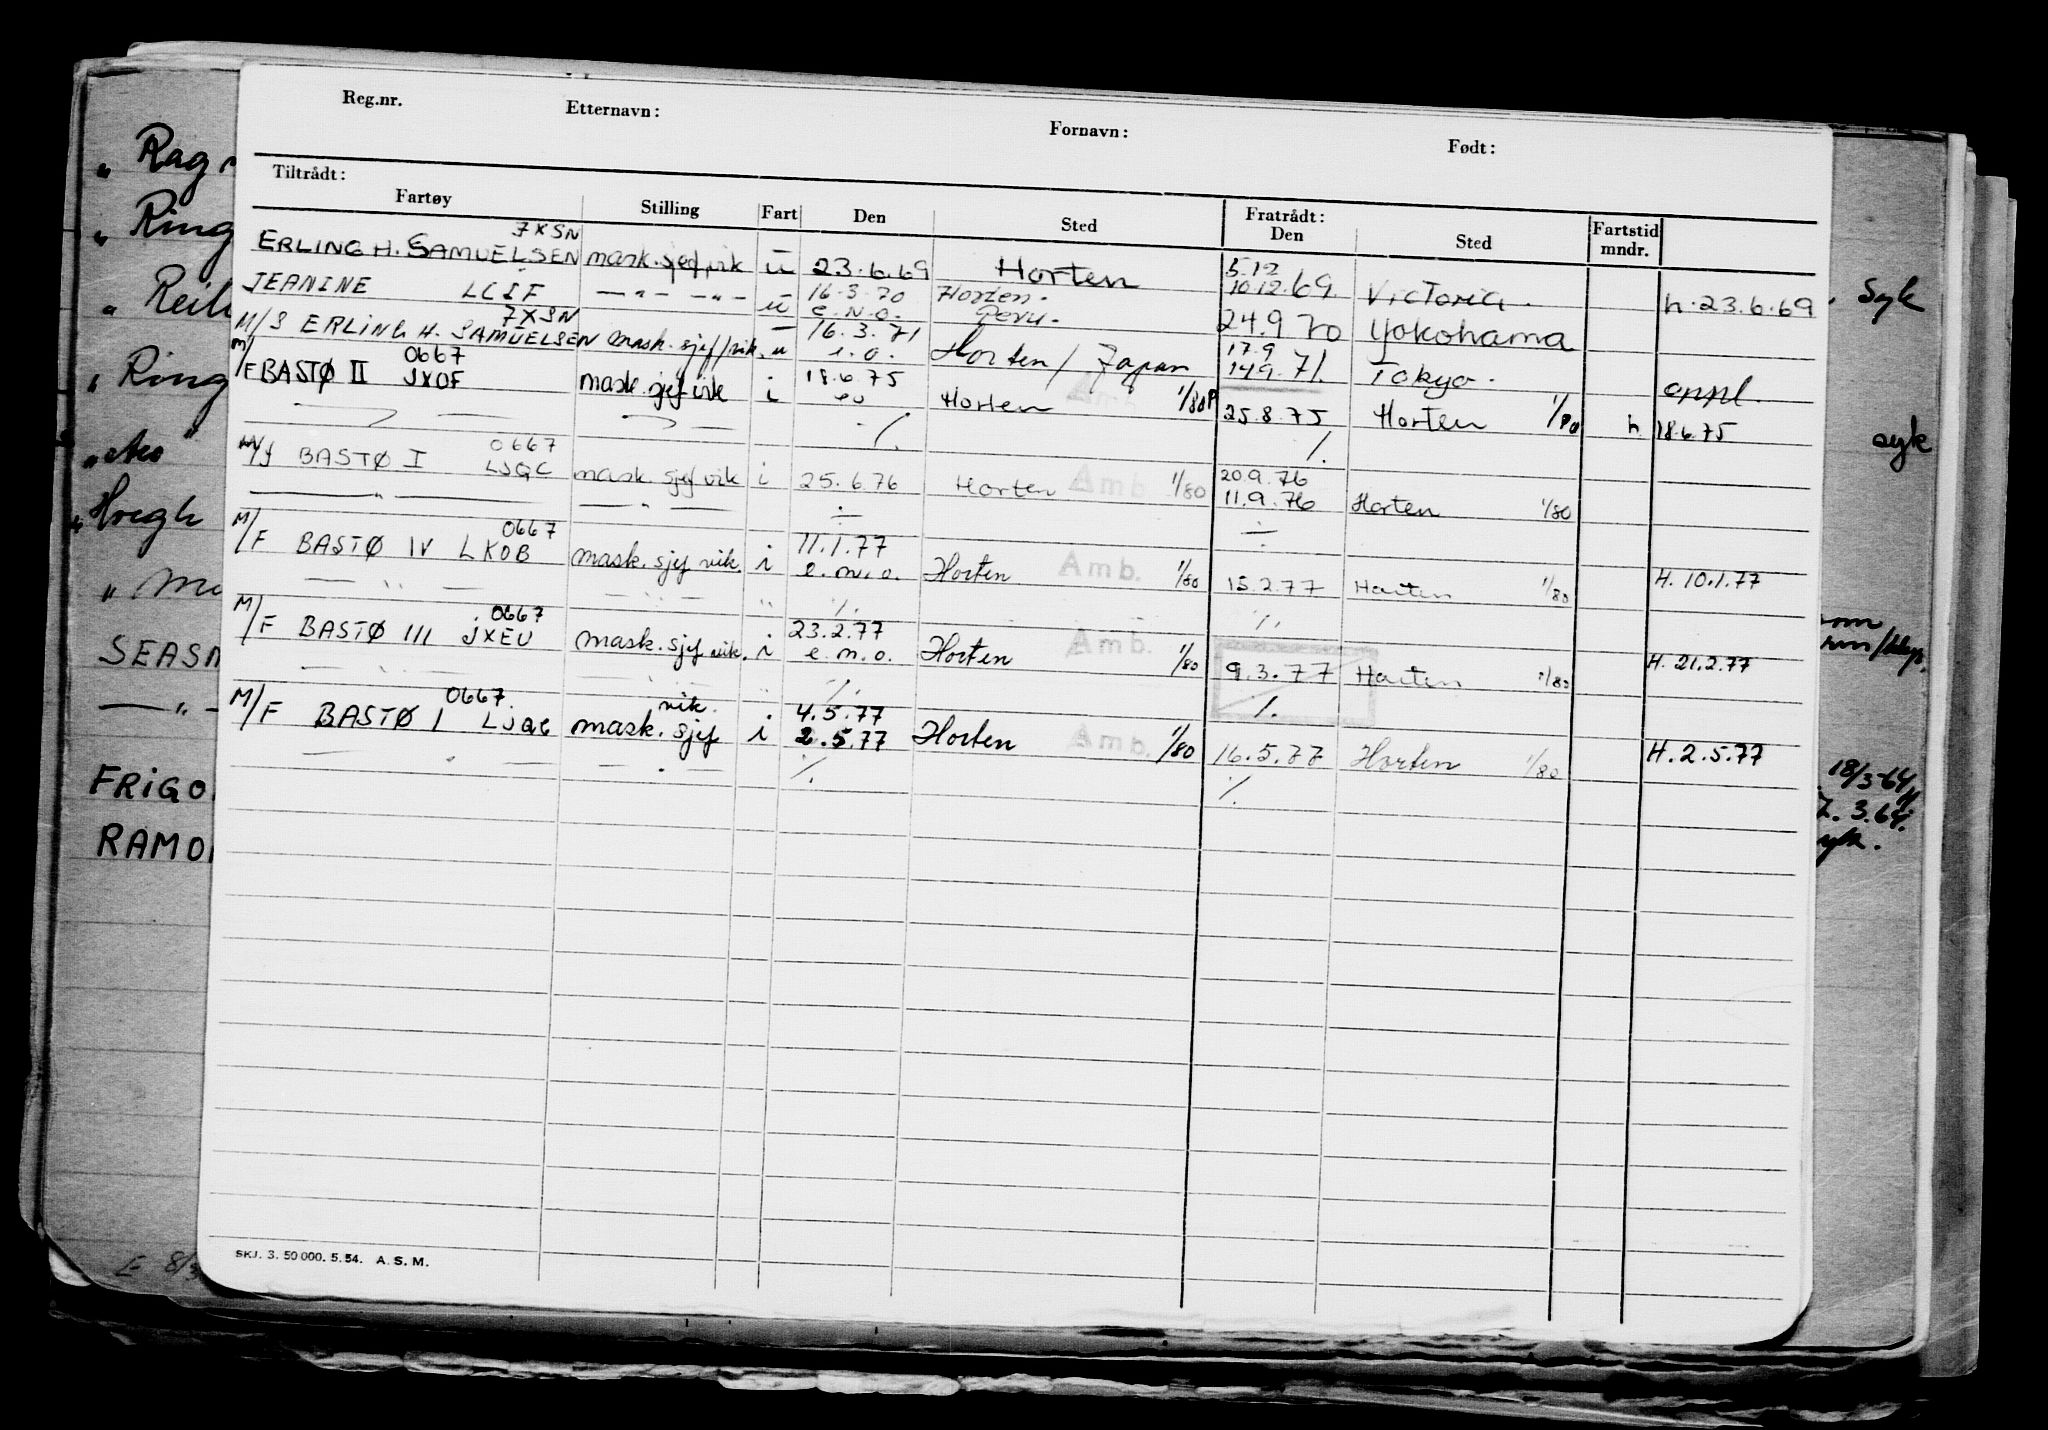 Reg.nr. Etternavn: Fornavn: Født:
Tiltrådt: Fratrådt:
Fartøy Stilling Fart Den Sted Den Sted Fartstid mndr.
7XSN 5.12
ERLING H. SAMUELSEN mask.sjef vik u 23.6.69 Horten 10.12.69 Victoria h. 23.6.69
JEANINE LCIF — " — — " — u 16.3.70 e.n.o. Horten. Peru. 24.9 70 Yokohama
7XSN 16.3.71 17.9
M/S ERLING H. SAMUELSEN mask. sjef/vik. u e.o. Horten / Japan 14.9.71. Tokyo. oppl.
0667 18.6.75
M/F BASTØ II JXOF mask.sjef vik i eo Horten Amb 1/80 25.8.75 Horten 1/80 h. 18.6.75
./. ./.
0667 20.9.76
M/F BASTØ I LJQC mask. sjef vik i 25.6.76 Horten Amb 1/80 11.9.76 Horten 1/80
— " — — " — ÷ ÷
0667 11.1.77
M/F BASTØ IV LKOB mask. sjef vik. i e.m.o. Horten Amb. 1/80 15.2.77 Horten 1/80 H. 10.1.77
— " — — " — " ./. ./.
0667 23.2.77
M/F BASTØ III JXEU mask. sjef vik. i e.m.o. Horten Amb. 1/80 9.3.77 Horten 1/80 H. 21.2.77
— " — — " — " ./. ./.
0667. vik. 4.5.77
M/F BASTØ I LJQC mask. sjef i 2.5.77 Horten Amb. 1/80 16.5.77 Horten 1/80 H. 2.5.77
— " — — " — ./. ./.
SKJ. 3. 50 000. 5. 54. A. S. M.
" Ring
" Ring
Syk
syk
Høegh
SEASN
— " —
FRIGO
RAMO
18/3-64
7. 3.64.
syk.